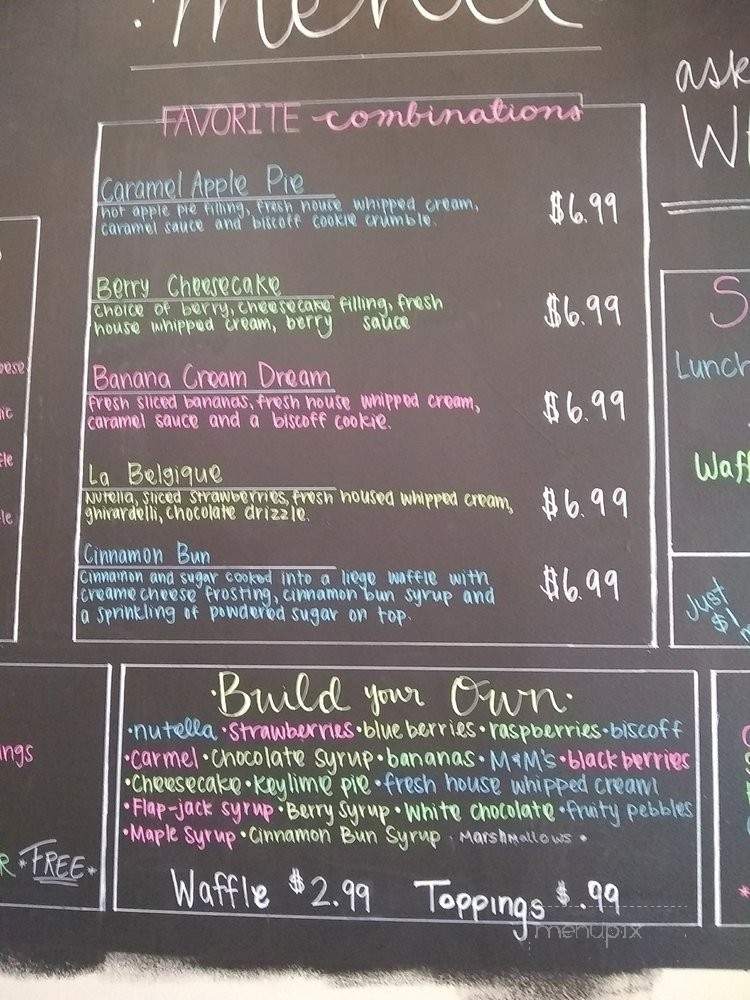 menu
ask
FAVORITE combinations
Caramel Apple Pie
hot apple pie filling, fresh house whipped cream,
caramel sauce and biscoff cookie crumble.
$6.99
Berry Cheesecake
choice of berry, cheesecake filling, fresh
house whipped cream, berry sauce
$6.99
Banana Cream Dream
fresh sliced bananas, fresh house whipped cream,
caramel sauce and a biscoff cookie.
$6.99
La Belgique
Nutella, sliced strawberries, fresh housed whipped cream,
ghirardelli, chocolate drizzle.
$6.99
Cinnamon Bun
Cinnamon and sugar cooked into a liege waffle with
creame cheese frosting, cinnamon bun syrup and
a sprinkling of powdered sugar on top.
$6.99
Lunch
Just
$1
·Build your Own·
·nutella·strawberries·blueberries·raspberries·biscoff
·carmel·Chocolate syrup·bananas·M&M's·blackberries
·Cheesecake·Keylime pie·fresh house whipped cream
·Flap-jack syrup·Berry Syrup·White chocolate·fruity pebbles
·Maple Syrup·Cinnamon Bun Syrup·Marshmallows·
Waffle $2.99 Toppings $.99
·FREE·
menupix